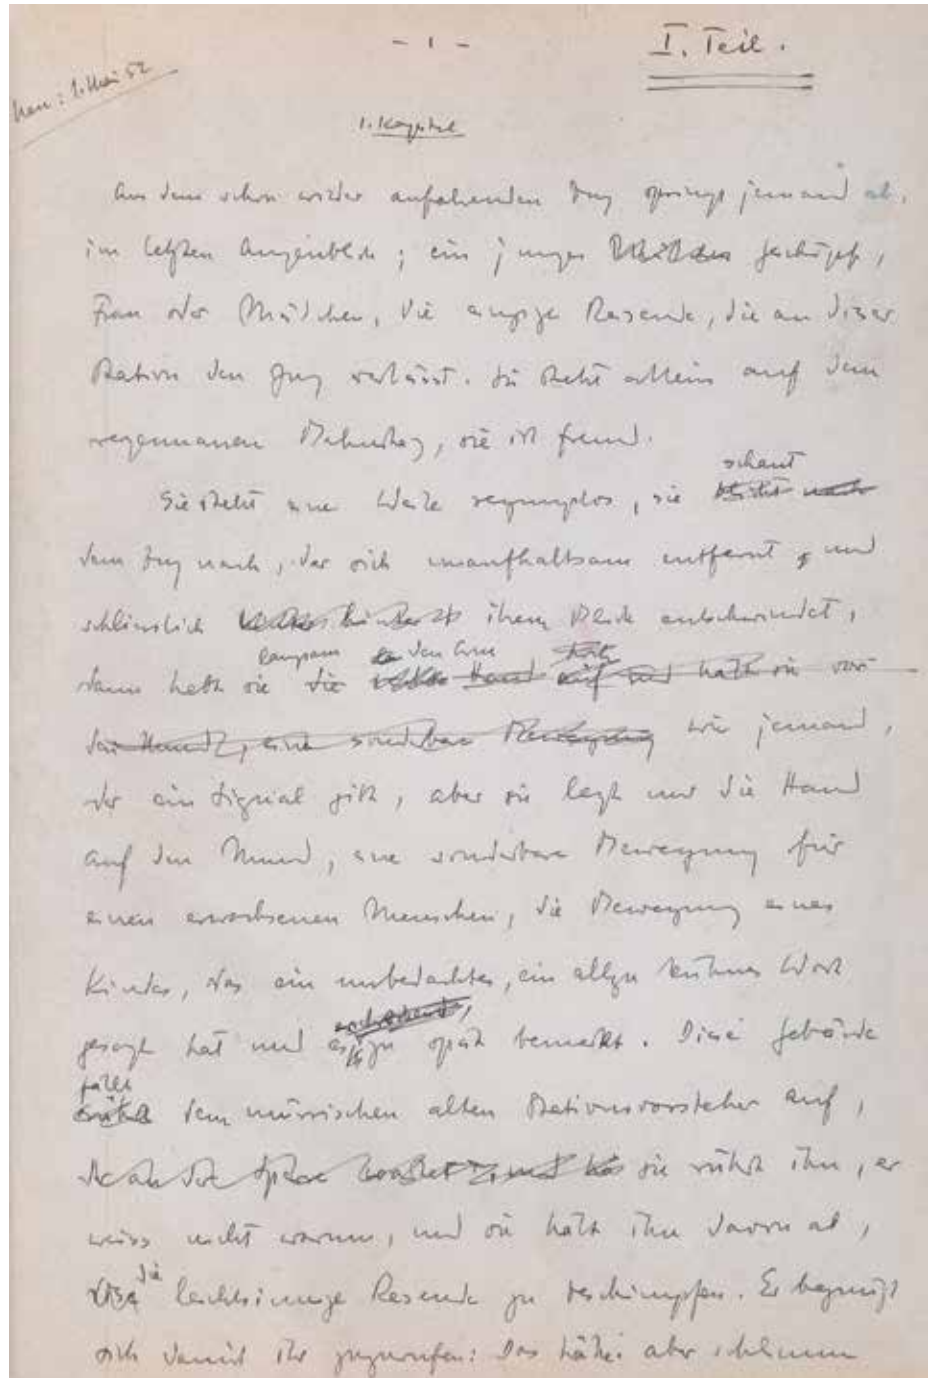 - 1 -
I. Teil.
1. Mai 52
1. Kapitel
Aus dem schon wieder anfahrenden Zug springt jemand ab,
im letzten Augenblick; ein junges Geschöpf,
Frau oder Mädchen, die einzige Reisende, die an dieser
Station den Zug verlässt. Sie steht allein auf dem
regennassen Bahnsteig, sie ist fremd.
schaut
Sie steht eine Weile regungslos, sie blickt nach
dem Zug nach, der sich unaufhaltsam entfernt und
schliesslich ihrem Blick entschwindet,
langsam den Arm hoch
dann hebt sie die Hand auf und hält sie vor
den Mund, eine sonderbare Bewegung wie jemand,
der ein Signal gibt, aber sie legt nur die Hand
auf den Mund, eine sonderbare Bewegung für
einen erwachsenen Menschen, die Bewegung eines
Kindes, das ein unbedachtes, ein allzu kühnes Wort
erschreckend,
gesagt hat und es zu spät bemerkt. Diese Gebärde
fällt
dem mürrischen alten Stationsvorsteher auf,
sie rührt ihn, er
weiss nicht warum, und sie hält ihn davon ab,
die
diese leichtsinnige Reisende zu beschimpfen. Er begnügt
sich damit ihr zuzurufen: Das hätte aber schlimm